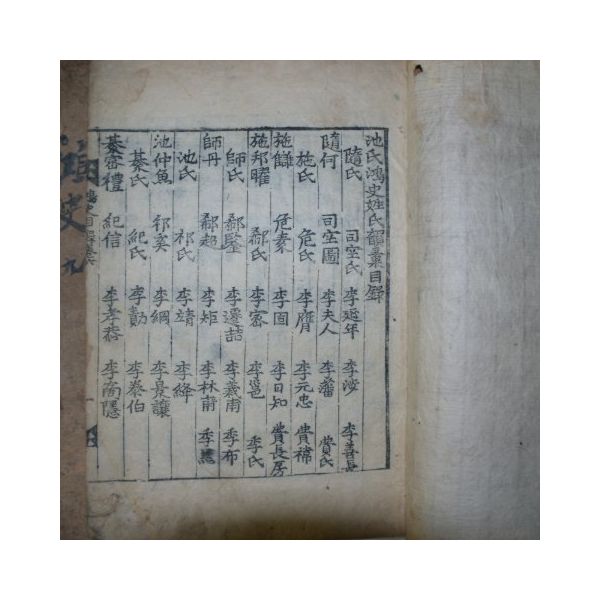 池氏鴻史姓氏韻彙目錄
隨氏 司空氏 李延年 李涉 李善長
隨何 司空圖 李夫人 李藩 費氏
施氏 危氏 李膺 李元忠 費禕
施讎 危素 李固 李日知 費長房
施邦曜 郗氏 李密 李邕 季氏
師氏 郗鑒 李遷喆 李義甫 季布
師丹 郗超 李矩 李林甫
池氏 祁氏 李靖 李絳
池仲魚 祁奚 李綱 李景讓
綦氏 紀氏 李勣 李泰伯
綦密禮 紀信 李孝恭 李商隱
史
九